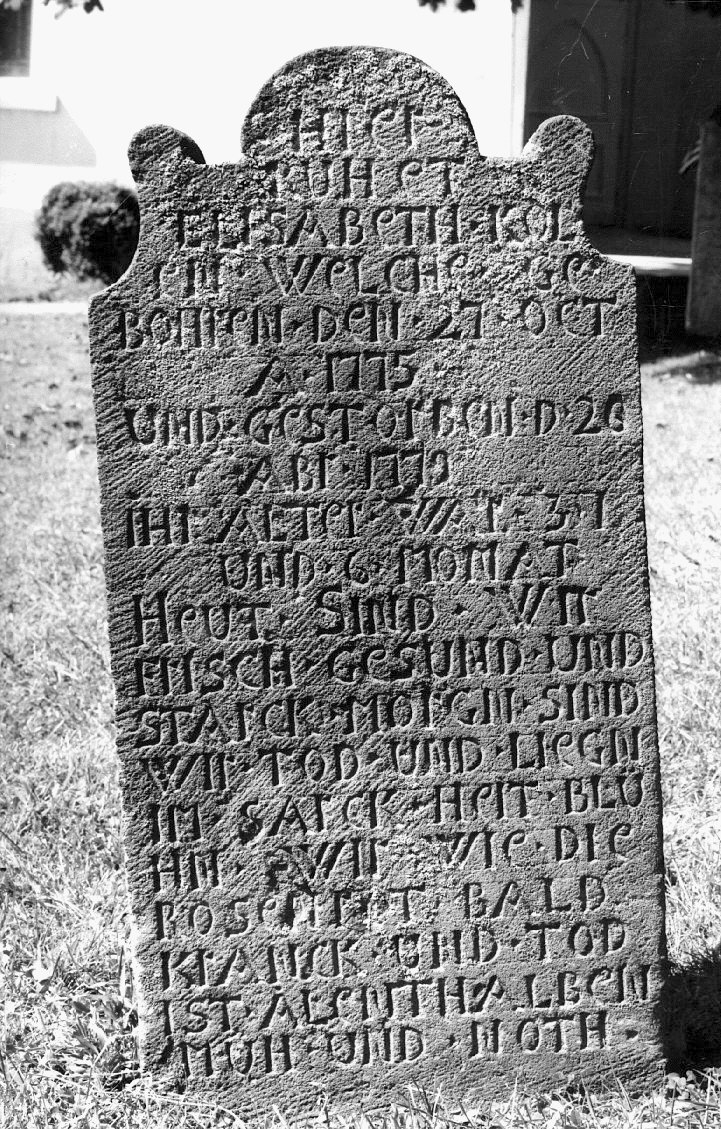 HIER
RUHET
ELISABETH·KOL
EIN·WELCHE·GE
BOHREN·DEN·27·OCT
A·1775
UND·GESTORBEN·D·26
ABR·1779
IHR·ALTER·WAR·3·I
UND·6·MONAT
HEUT·SIND·WIR
FRISCH·GESUND·UND
STARCK·MORGN·SIND
WIR·TOD·UND·LIEGN
IM·SARCK·HEIT·BLÜ
HN·WIR·WIE·DIE
ROSEN ROT BALD
KRANCK·UND·TOD
IST·ALENTHALBEN
MÜH·UND·NOTH·